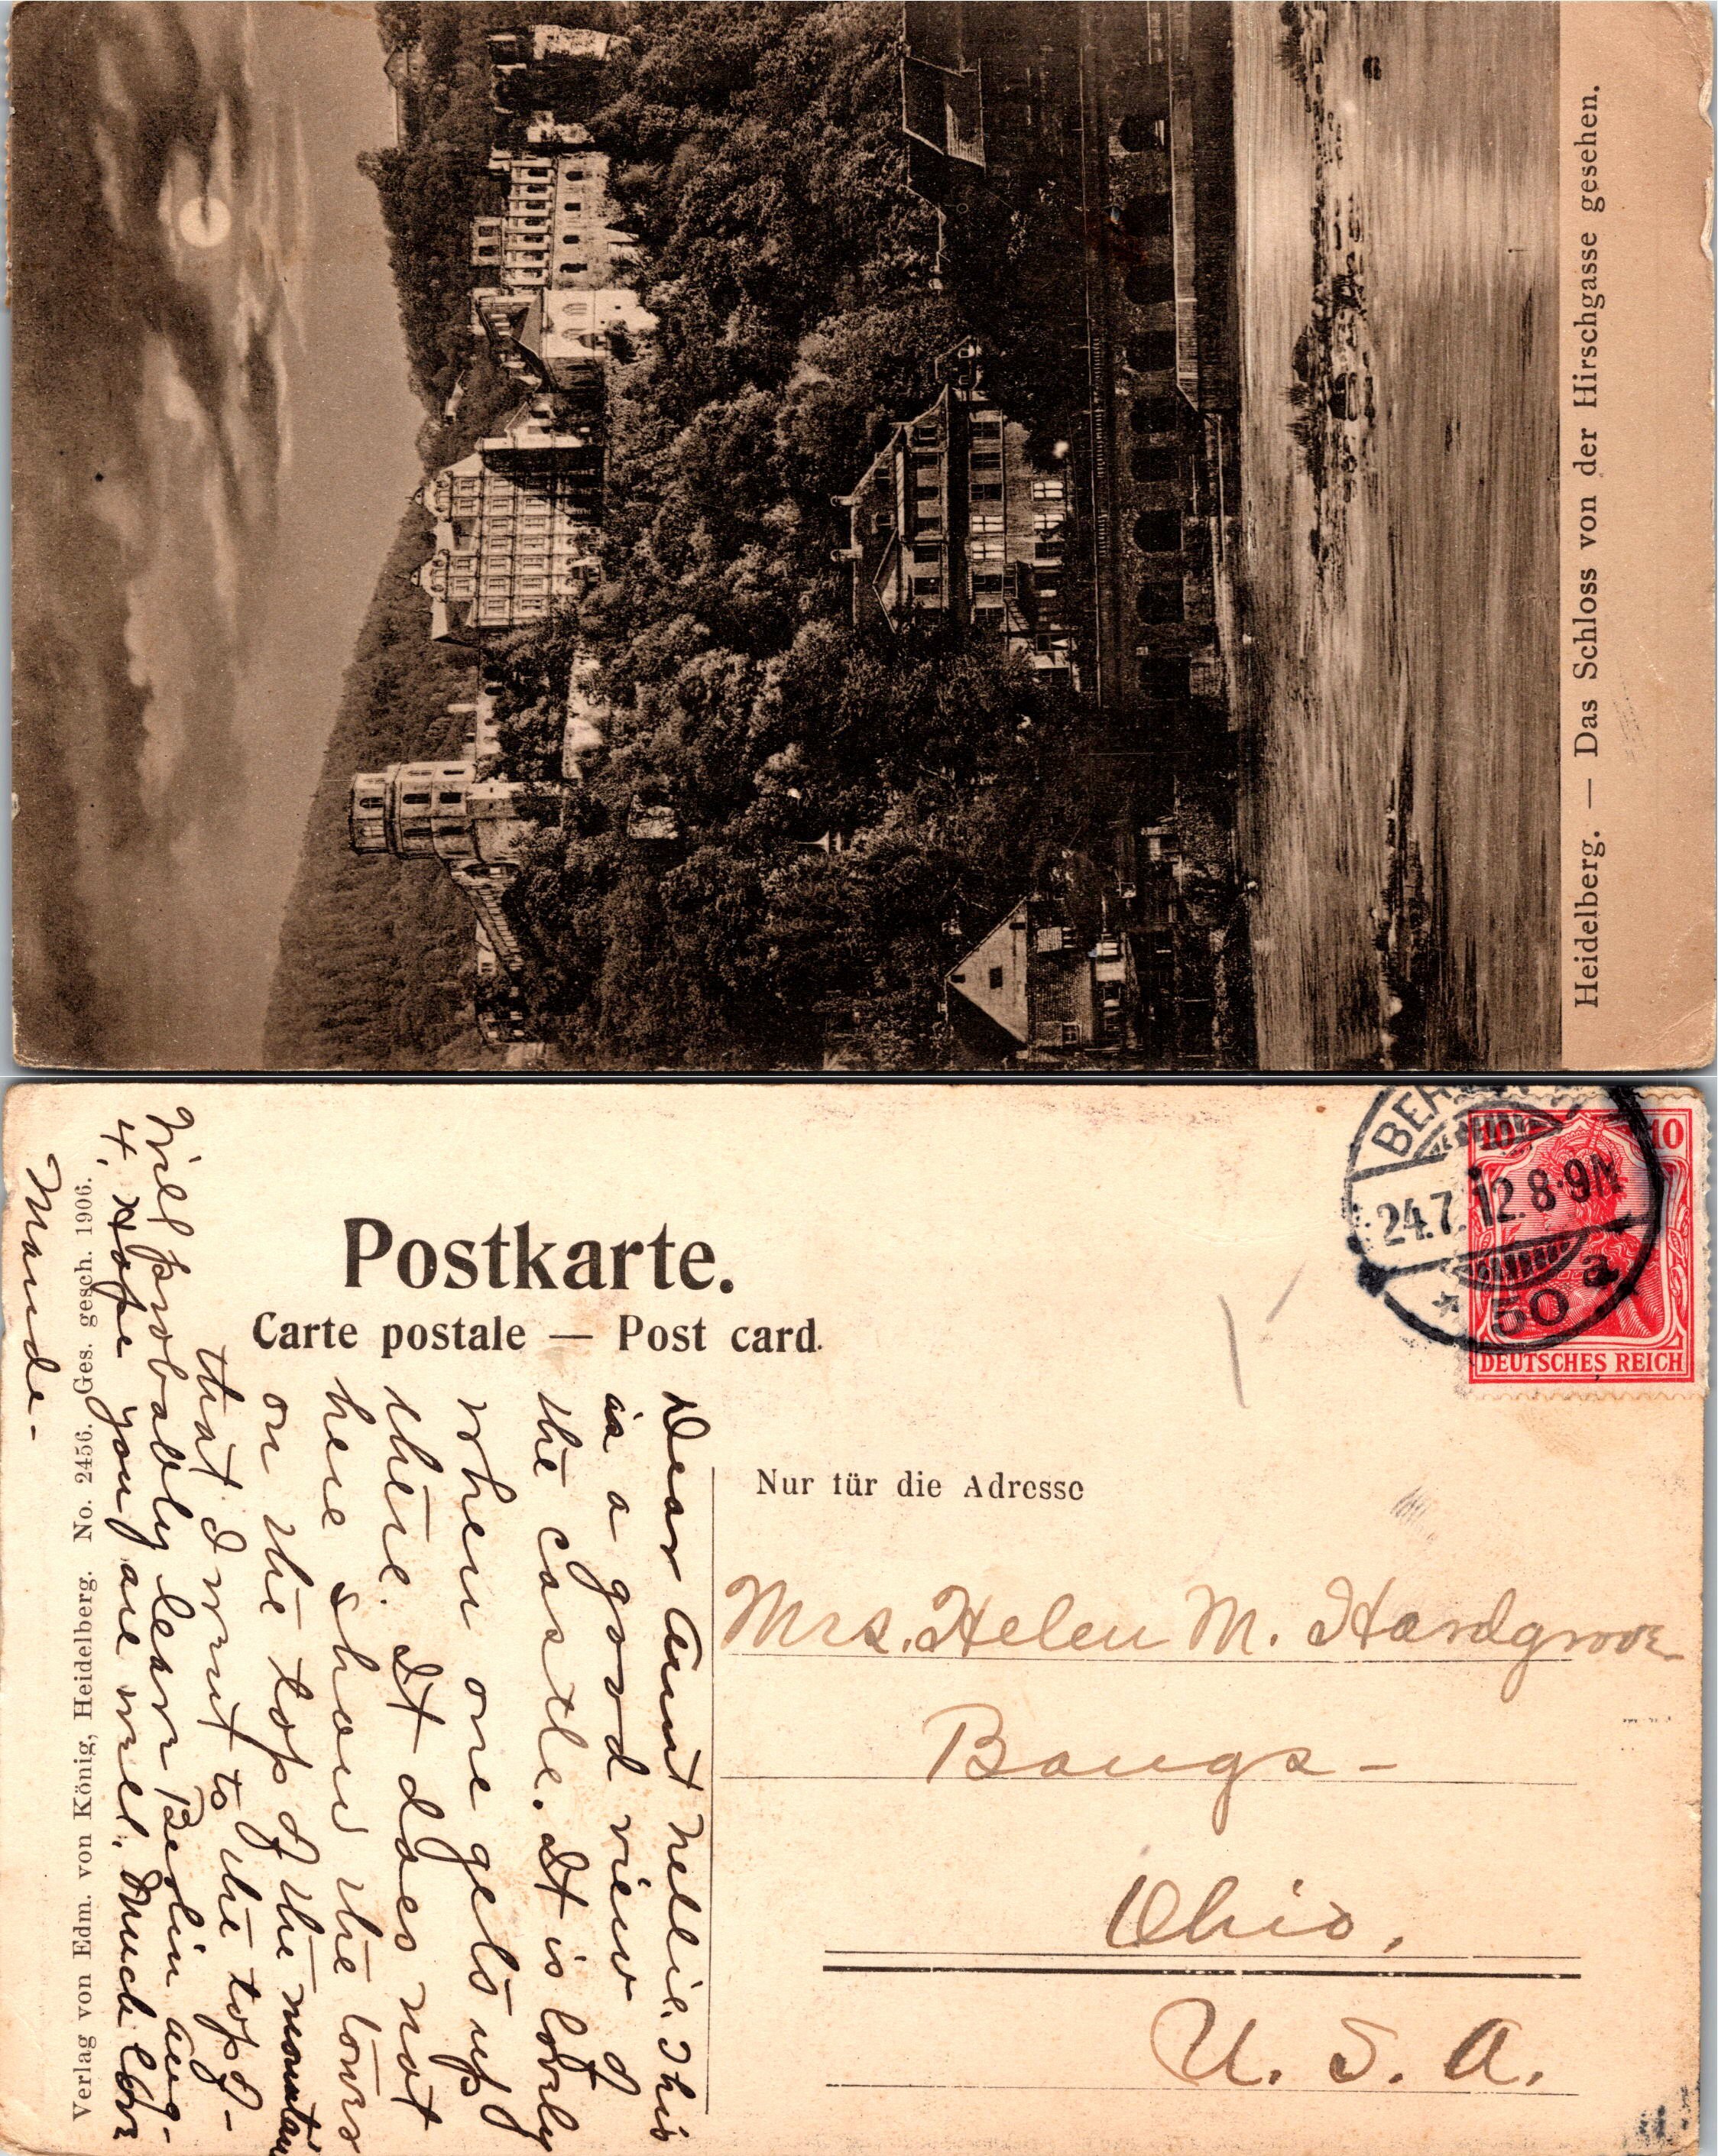 Heidelberg. — Das Schloss von der Hirschgasse gesehen.
Postkarte.
Carte postale — Post card.
BER
24.7.12.8-9N
* 50 a
10 10
DEUTSCHES REICH
Nur für die Adresse
Mrs. Helen M. Hardgrove
Bangs -
Ohio,
U. S. A.
Dear Aunt Nellie. This
is a good view of
the castle. It is lovely
when one gets up
there. It does not
here show the tower
on the top of the mountain
that I went to the top of -
Will probably leave Berlin Aug -
4. Hope you are well. Much love
Maude -
Verlag von Edm. von König, Heidelberg. No. 2456. Ges. gesch. 1906.